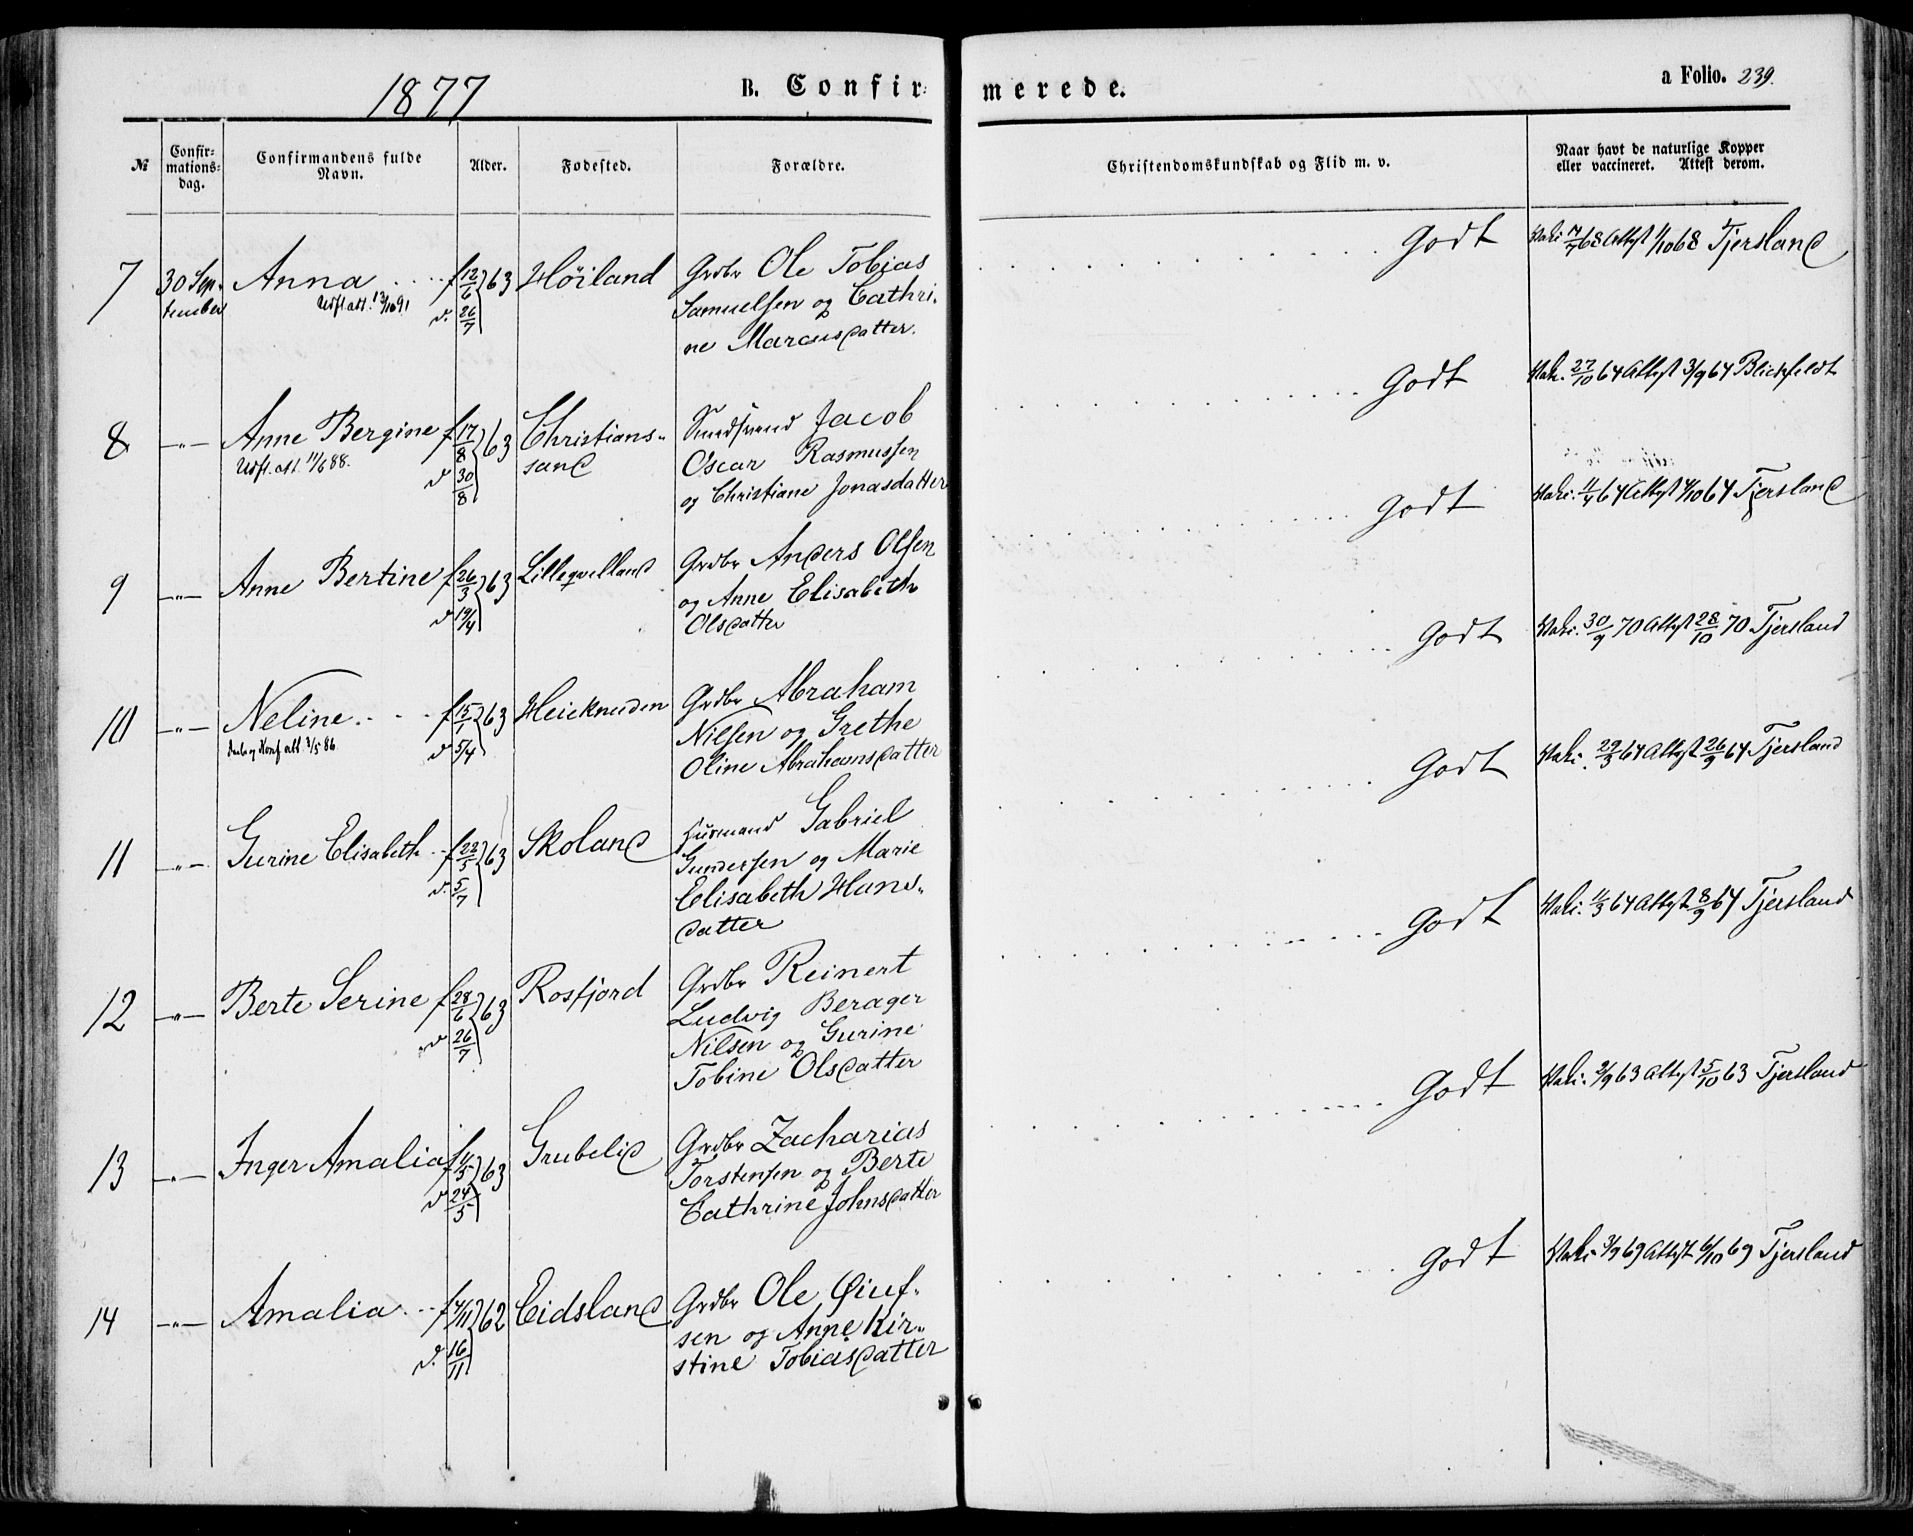 1877
B. Confir-
merede.
a Folio. 239.
№
Confir-
mations-
dag.
Confirmandens fulde
Navn.
Alder.
Fødested.
Forældre.
Christendomskundskab og Flid m. v.
Naar havt de naturlige Kopper
eller vaccineret. Attest derom.
7 30 Sep- Anna f 12/6 63 Høiland Grdbr Ole Tobias
tember Udfl. att. 13/10 91 d. 26/7 Samuelsen og Cathri-
ne Marcusdatter.
Godt 68 Attest 1/10 68 Tjersland
8 -"- Anne Bergine f 17/8 63 Christians- Jacob
Udfl. att. 11/6 88. d 30/8 sand Oscar Rasmussen
og Christiane Jonasdatter
Godt Vaki. 27/10 64 Attest 3/9 64 Blickfeldt
9 -"- Anne Bertine f 26/3 63 Lilleqvelland Grdbr Anders Olsen
d 19/4 og Anne Elisabeth
Olsdatter
Godt Vaki. 11/4 64 Attest 4/10 64 Tjersland
10 -"- Neline f 15/1 63 Heieknuden Grdbr Abraham
att. 3/5 86. d 5/4 Nilsen og Grethe
Oline Abrahamsdatter
Godt Vaki. 30/9 70 Attest 28/10 70 Tjersland
11 -"- Gurine Elisabeth f 22/5 63 Skoland Husmand Gabriel
d. 5/7 Gundersen og Marie
Elisabeth Hans-
datter
Godt Vaki. 29/3 64 Attest 26/9 64 Tjersland
12 -"- Berte Serine f 28/6 63 Rosfjord Grdbr Reinert
d 26/7 Ludvig Berager
Nilsen og Gurine
Tobine Olsdatter
Godt Vaki. 11/3 64 Attest 8/9 64 Tjersland
13 -"- Inger Amalia f 4/5 63 Grubelid Grdbr Zacharias
d 24/5 Torstensen og Berte
Cathrine Johnsdatter
Godt Vaki. 2/9 63 Attest 5/10 63 Tjersland
14 -"- Amalia f 4/11 62 Eidsland Grdbr Ole Øiuf-
d. 16/11 sen og Anne Kir-
stine Tobiasdatter
Godt Vaki. 3/9 69 Attest 6/10 69 Tjersland